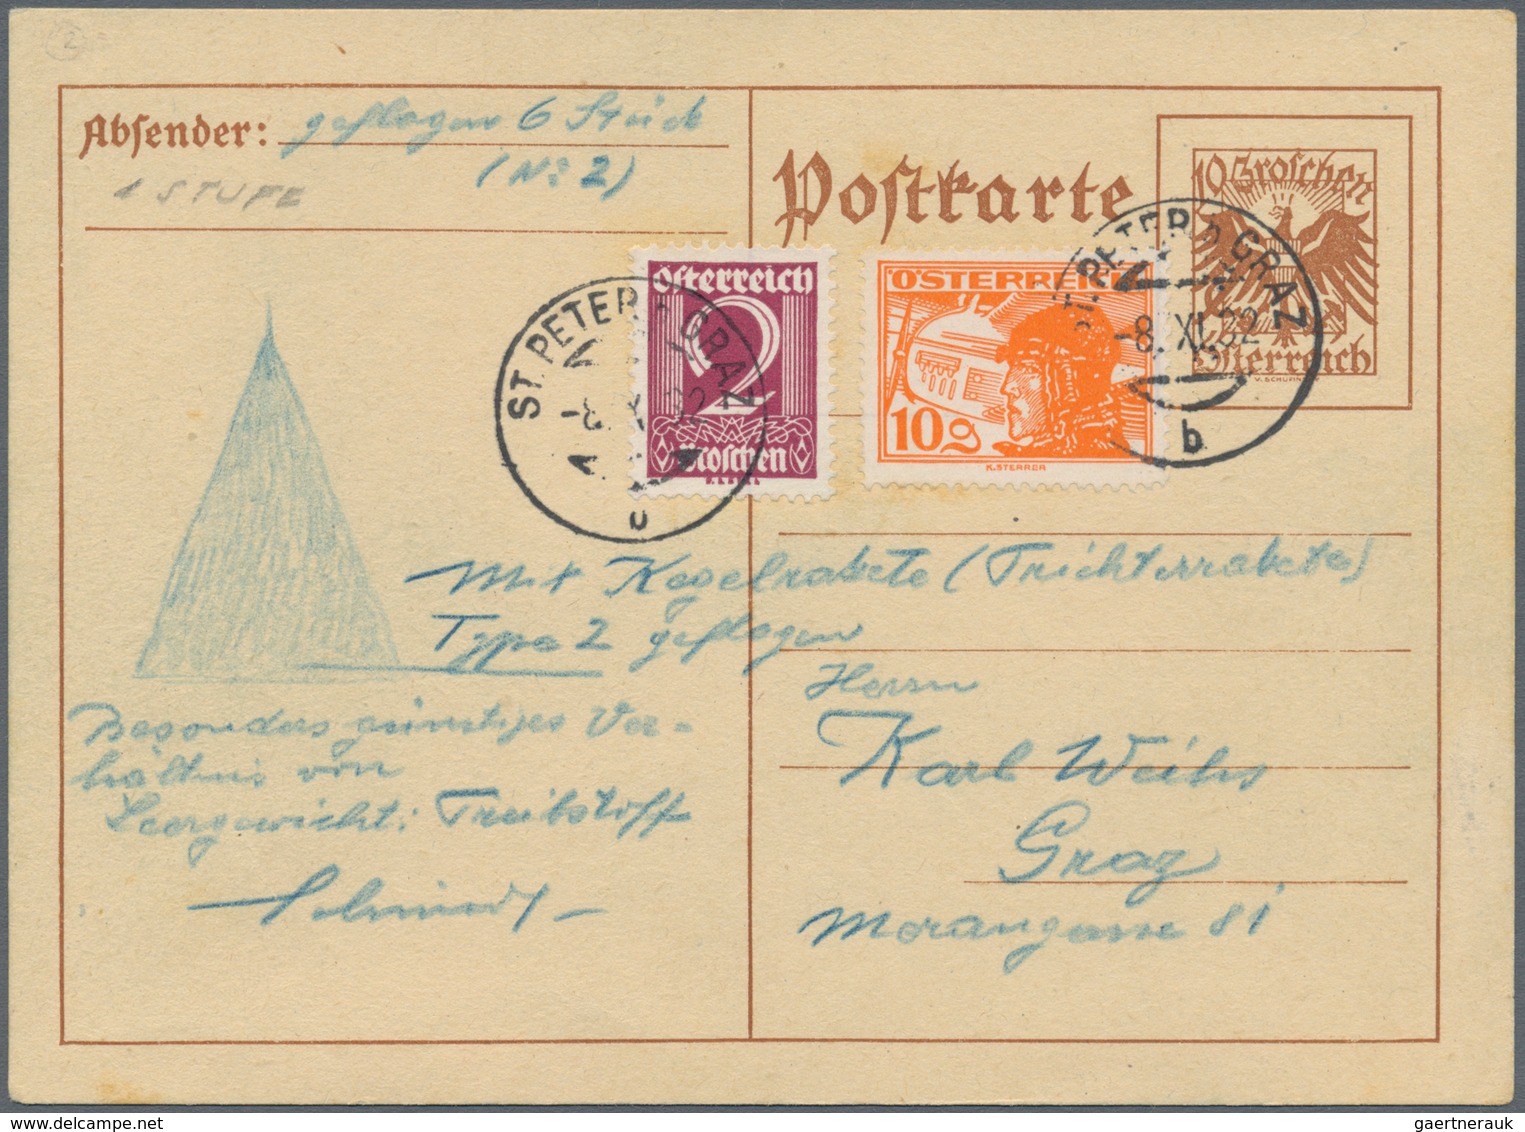 2
Absender: geflogen 6 Stück
(No 2)
1 STUFE
Postkarte
10 Groschen
Österreich
V. SCHUFINSKY
Österreich
2
Groschen
ÖSTERREICH
10g
K. STERRER
ST. PETER B. GRAZ
-8. XI. 32
b
ST. PETER B. GRAZ
-8. XI. 32
b
Mit Kegelrakete (Trichterrakete)
Type 2 geflogen
Besonders günstiges Ver-
hältnis von
Leergewicht: Treibstoff
Schmiedl
Herrn
Karl Weihs
Graz
Morangasse 81
gaertnerauk